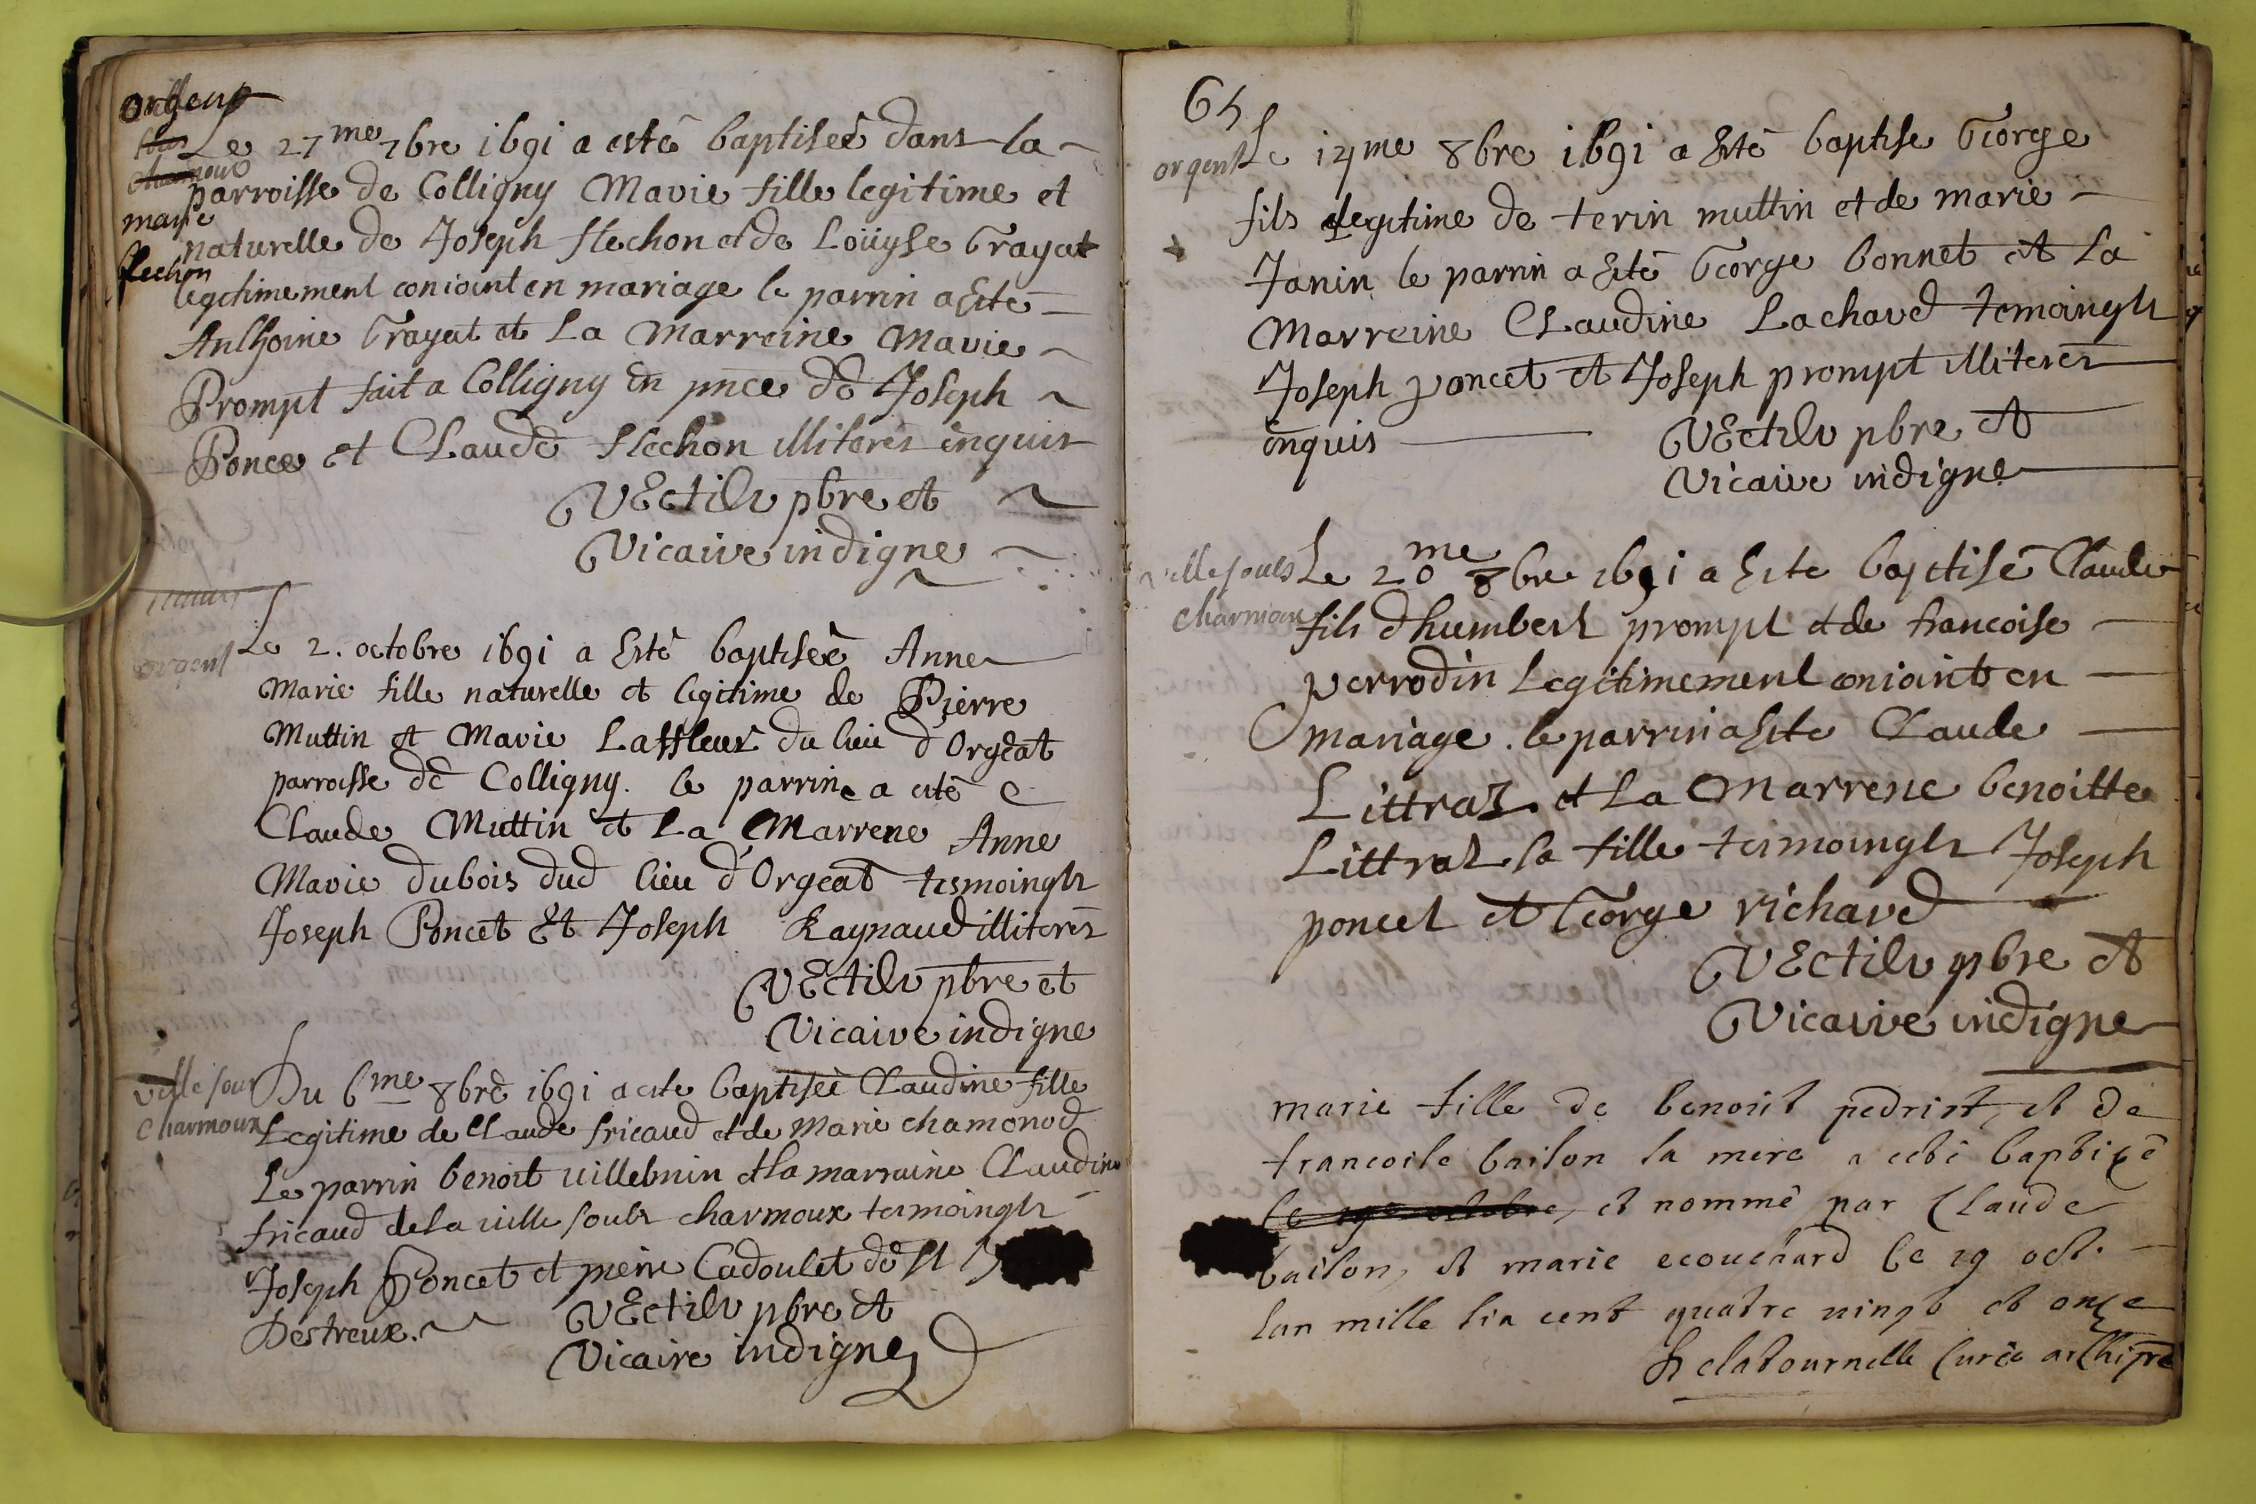 orgent
sous
charmoux
marie
flechon
Le 27me 7bre 1691 a esté baptiseé dans la
parroisse de Colligny Marie fille legitime et
naturelle de Joseph flechon et de Loüyse Trayat
legitimement conioint en mariage le parrin a Esté
Anthoine Trayat et La Marreine Marie
Prompt fait a Colligny En pnce de Joseph
Ponce et Claude flechon illiterés enquis
VEctilv pbre et
Vicaire indigne
orgent
Le 2. octobre 1691 a Esté baptiseé Anne
Marie fille naturelle et legitime de Pierre
Muttin et Marie Laffleur du lieu d'Orgeat
parroisse de Colligny. le parrin a esté
Claude Muttin et La Marrene Anne
Marie dubois dud lieu d'Orgeat tesmoingts
Joseph Poncet Et Joseph Raynaud illiterés
VEctilv pbre et
Vicaire indigne
ville sous
Charmoux
Du 6me 8bre 1691 a este baptiseé Claudine fille
Legitime de Claude fricaud et de Marie chamonod
Le parrin benoit uillebnin et la marraine Claudine
fricaud de la uille soubs charmoux tesmoingts
Joseph Poncet et pierre Cadoulet de St
Destreux.
VEctilv pbre et
Vicaire indigne
65
orgent
Le 14me 8bre 1691 a Esté baptise George
fils legitime de terin muttin et de marie
Janin le parrin a Esté George bonnet et La
Marreine Claudine Lachard temoingts
Joseph poncet et Joseph prompt illiterés
enquis
VEctilv pbre et
Vicaire indigne
ville sous
charmoux
Le 20me 8bre 1691 a Este baptisé Claude
fils d'humbert prompt et de francoise
perrodin Legitimement conioints en
mariage. le parrin a Este Claude
Littraz et La Marrene benoitte
Littraz la fille tesmoingts Joseph
poncet et George richard
VEctilv pbre et
Vicaire indigne
marie fille de benoist pedrist, et de
francoise bailon la mere a esté baptizé
le 19e octobre, et nommé par Claude
bailon, et marie ecouchard le 19 oct.
lan mille six cent quatre uingt et onze
Delatournelle Curée archipre